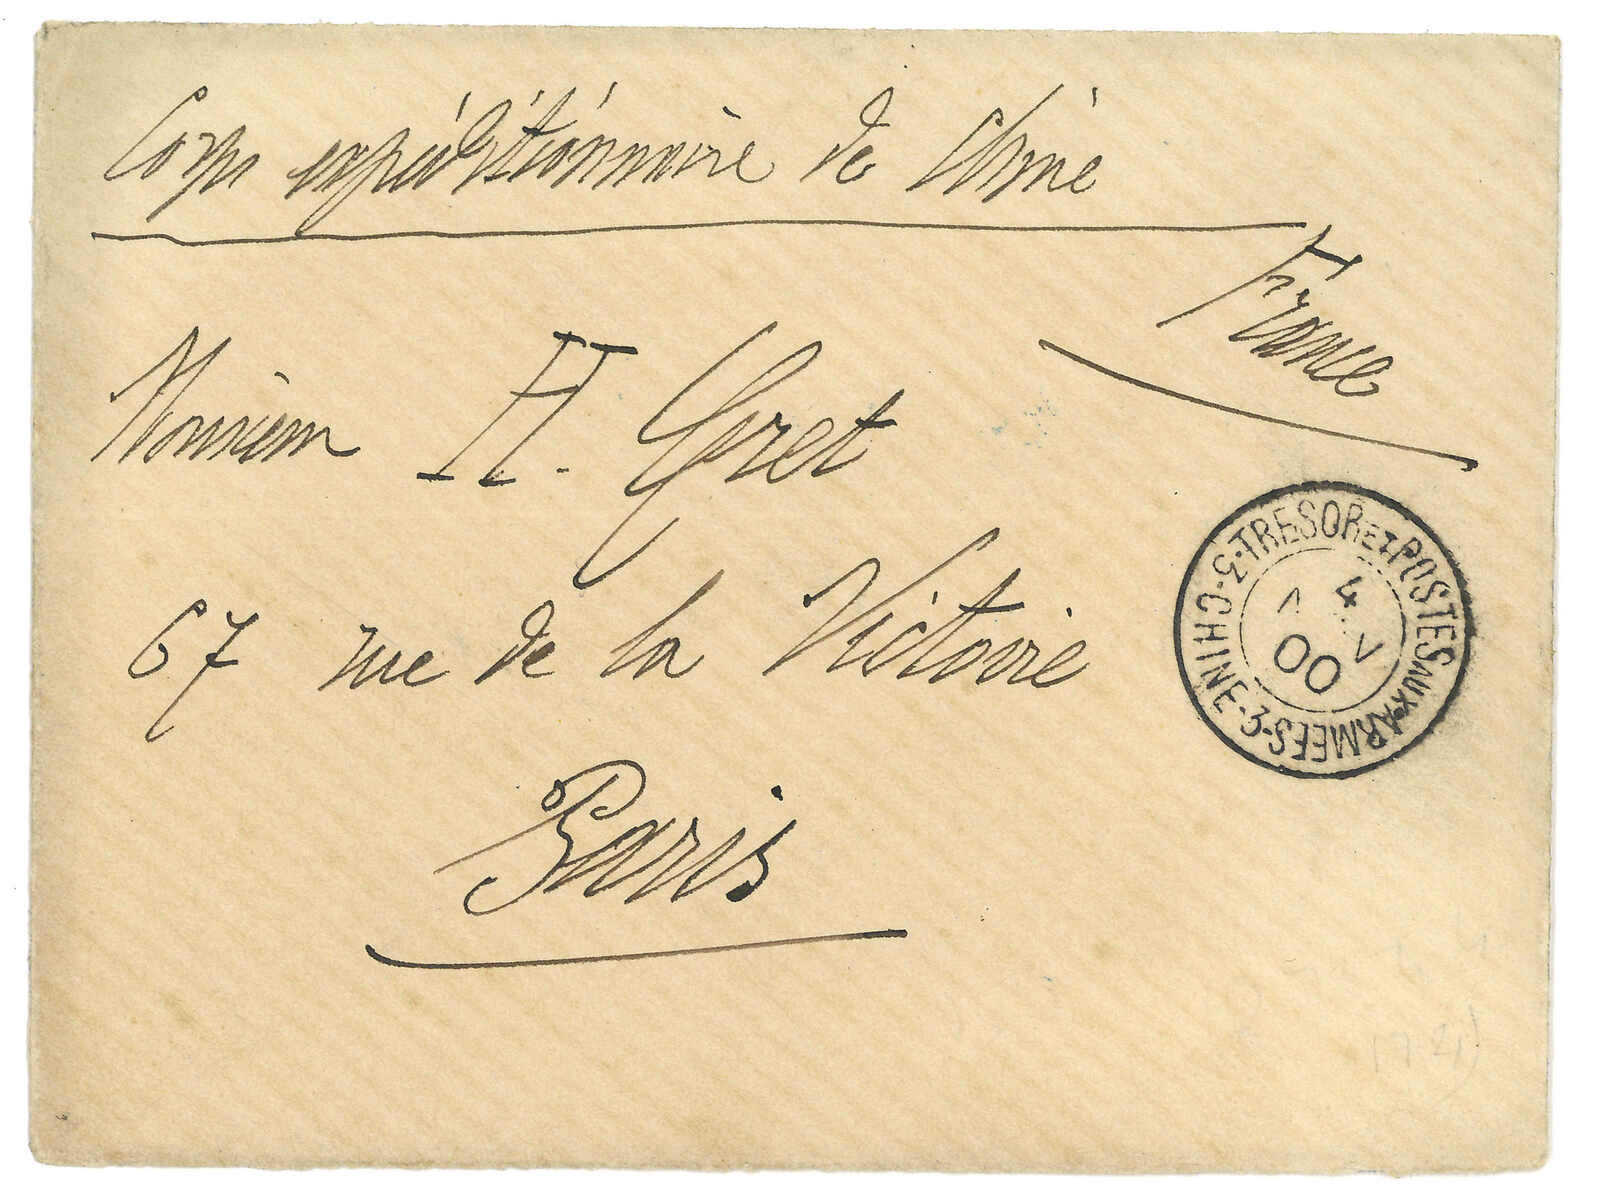 Corps expéditionnaire de Chine
France
Monsieur H. Gret
67 rue de la Victoire
Paris
TRESOR ET POSTES AUX ARMEES · 3 · CHINE · 3 ·
4
00